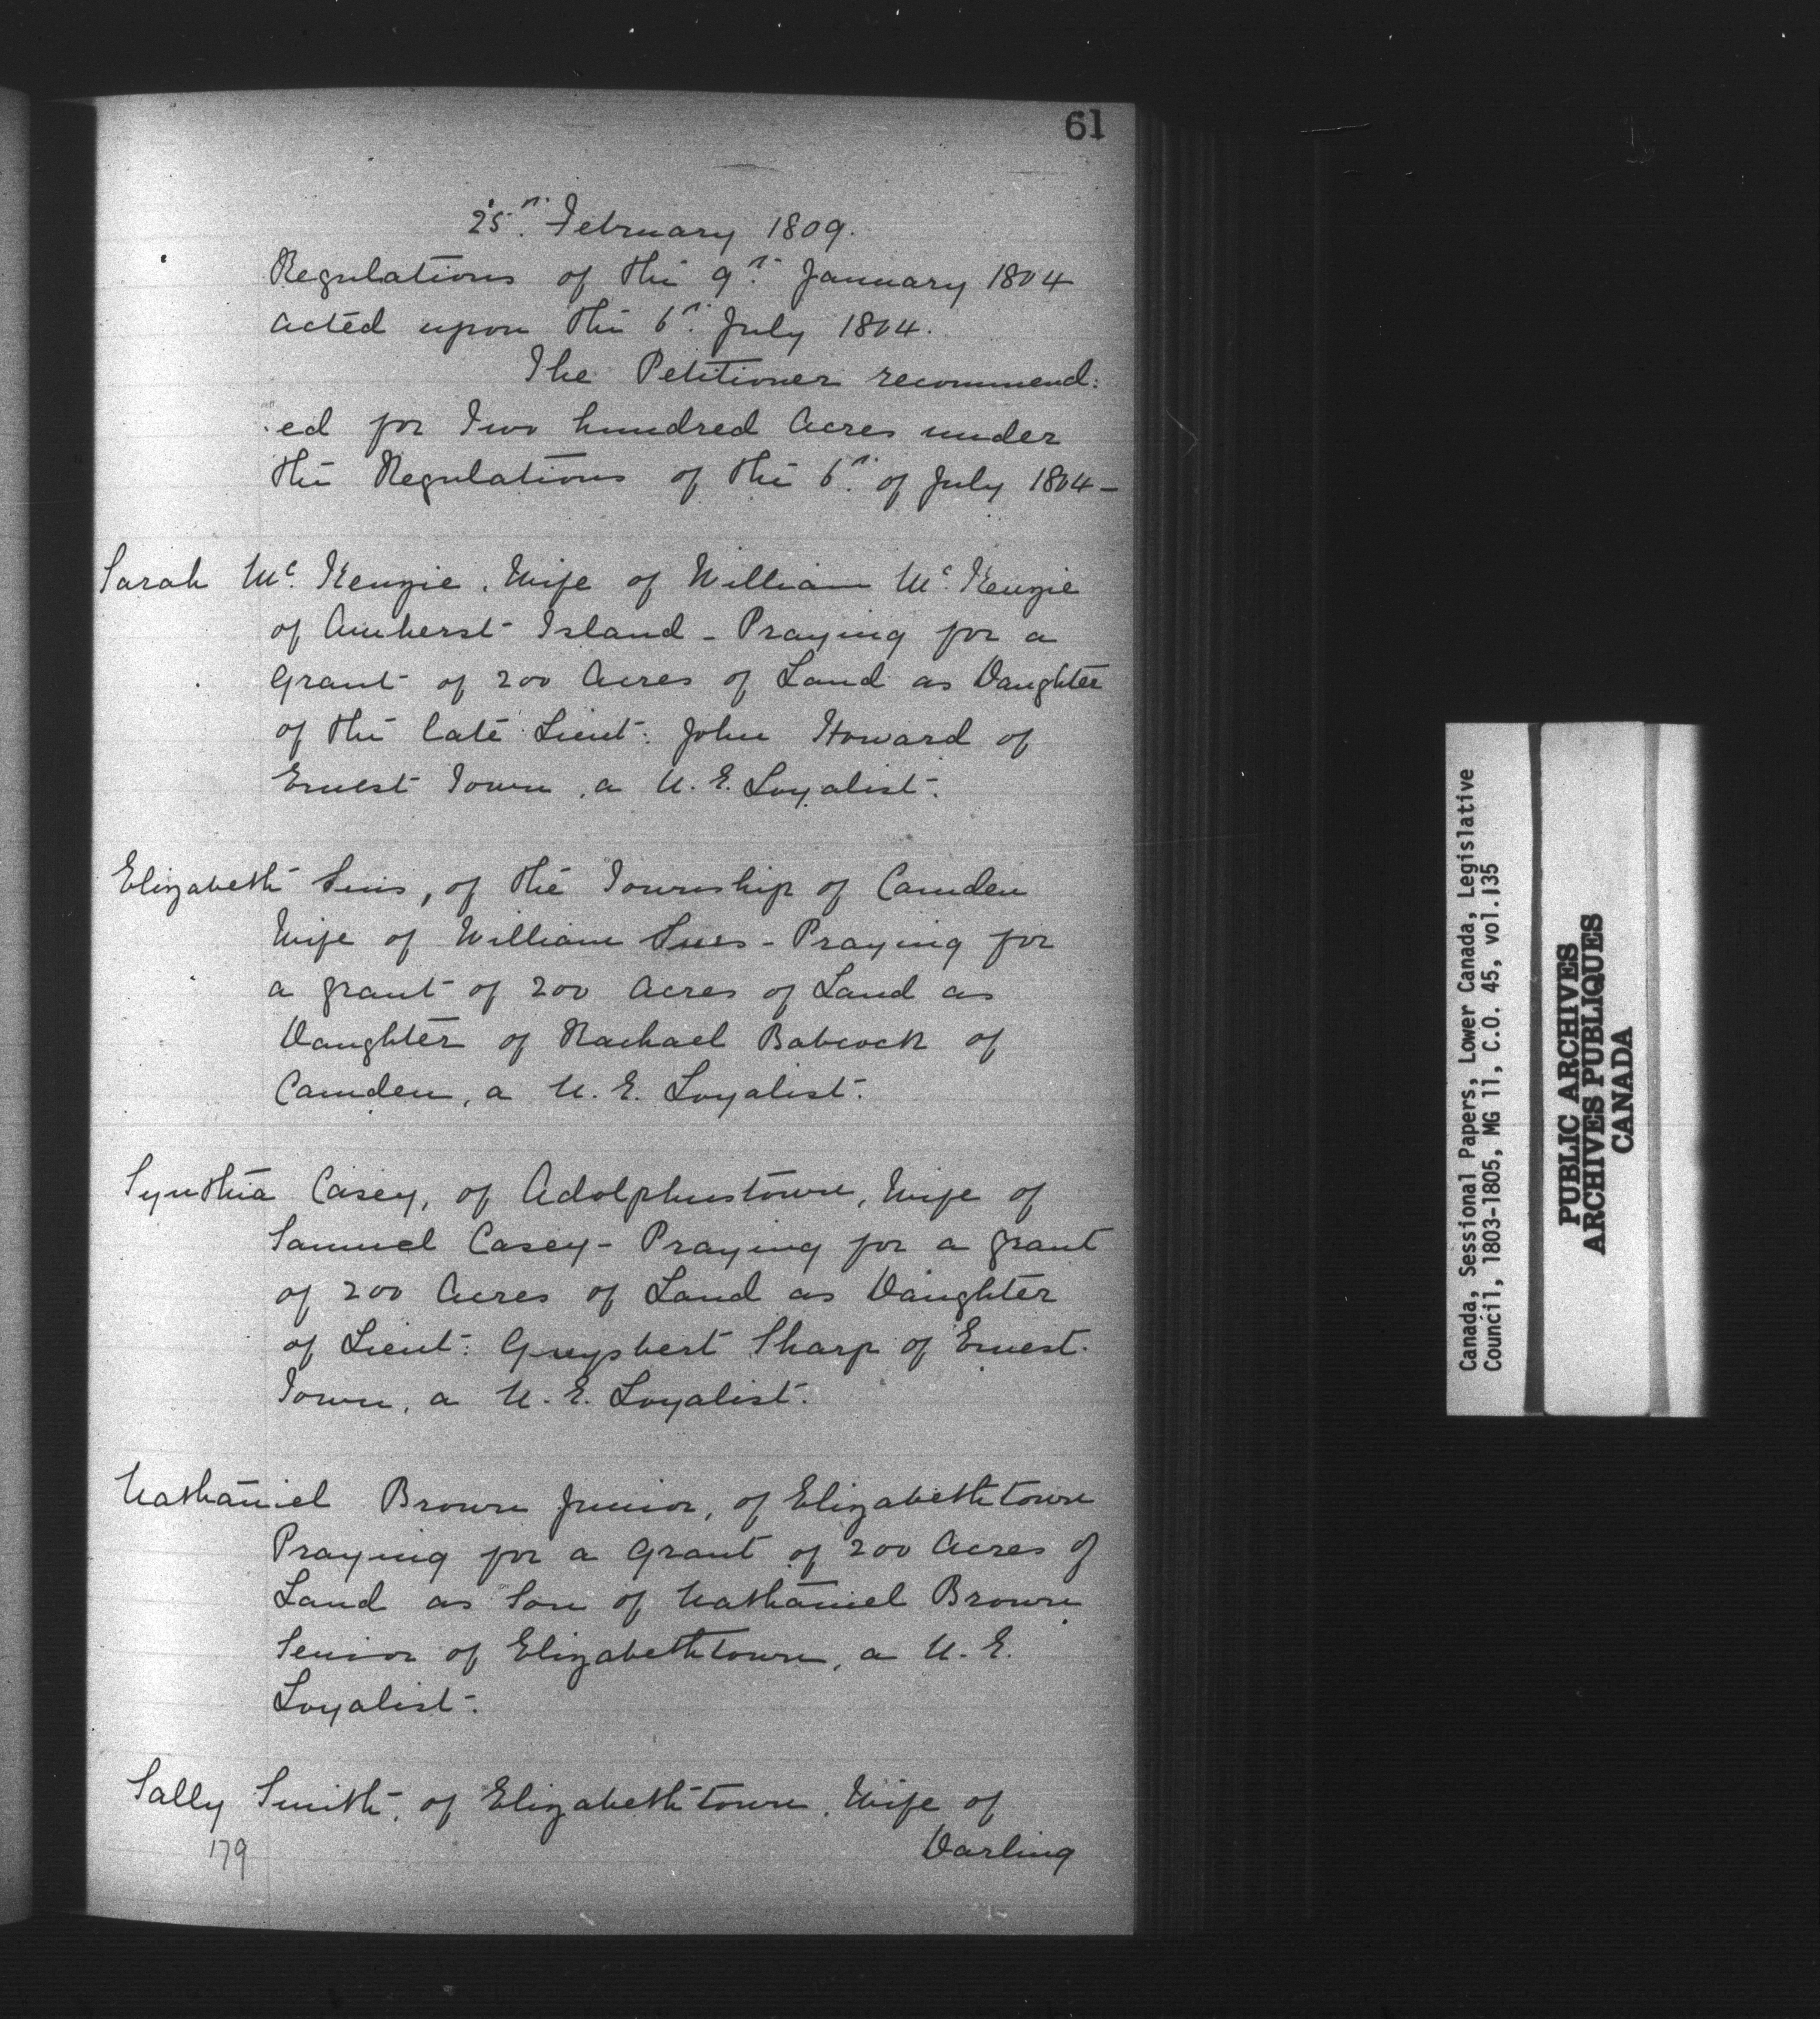 61
25th. February 1809.
Regulations of the 9th. January 1804
acted upon the 6th. July 1804.
The Petitioner recommend:
:ed for Two hundred Acres under
the Regulations of the 6th. of July 1804 -
Sarah Mc. Kenzie, Wife of William Mc. Kenzie
of Amherst Island - Praying for a
Grant of 200 Acres of Land as Daughter
of the late Lieut: John Howard of
Ernest Town, a U. E. Loyalist.
Elizabeth Sims, of the Township of Camden
Wife of William - Praying for
a grant of 200 Acres of Land as
Daughter of Rachael Babcock of
Camden, a U. E. Loyalist.
Synthia Casey, of Adolphustown, Wife of
Samuel Casey - Praying for a grant
of 200 Acres of Land as Daughter
of Lieut: Guysbert Sharp of Ernest
Town, a U. E. Loyalist.
Nathaniel Brown Junior, of Elizabethtown
Praying for a Grant of 200 Acres of
Land as Son of Nathaniel Brown
Senior of Elizabethtown, a U. E.
Loyalist.
Sally Smith, of Elizabethtown, Wife of
Darling
179
Canada, Sessional Papers, Lower Canada, Legislative
Council, 1803-1805, MG 11, C.O. 45, vol.135
PUBLIC ARCHIVES
ARCHIVES PUBLIQUES
CANADA